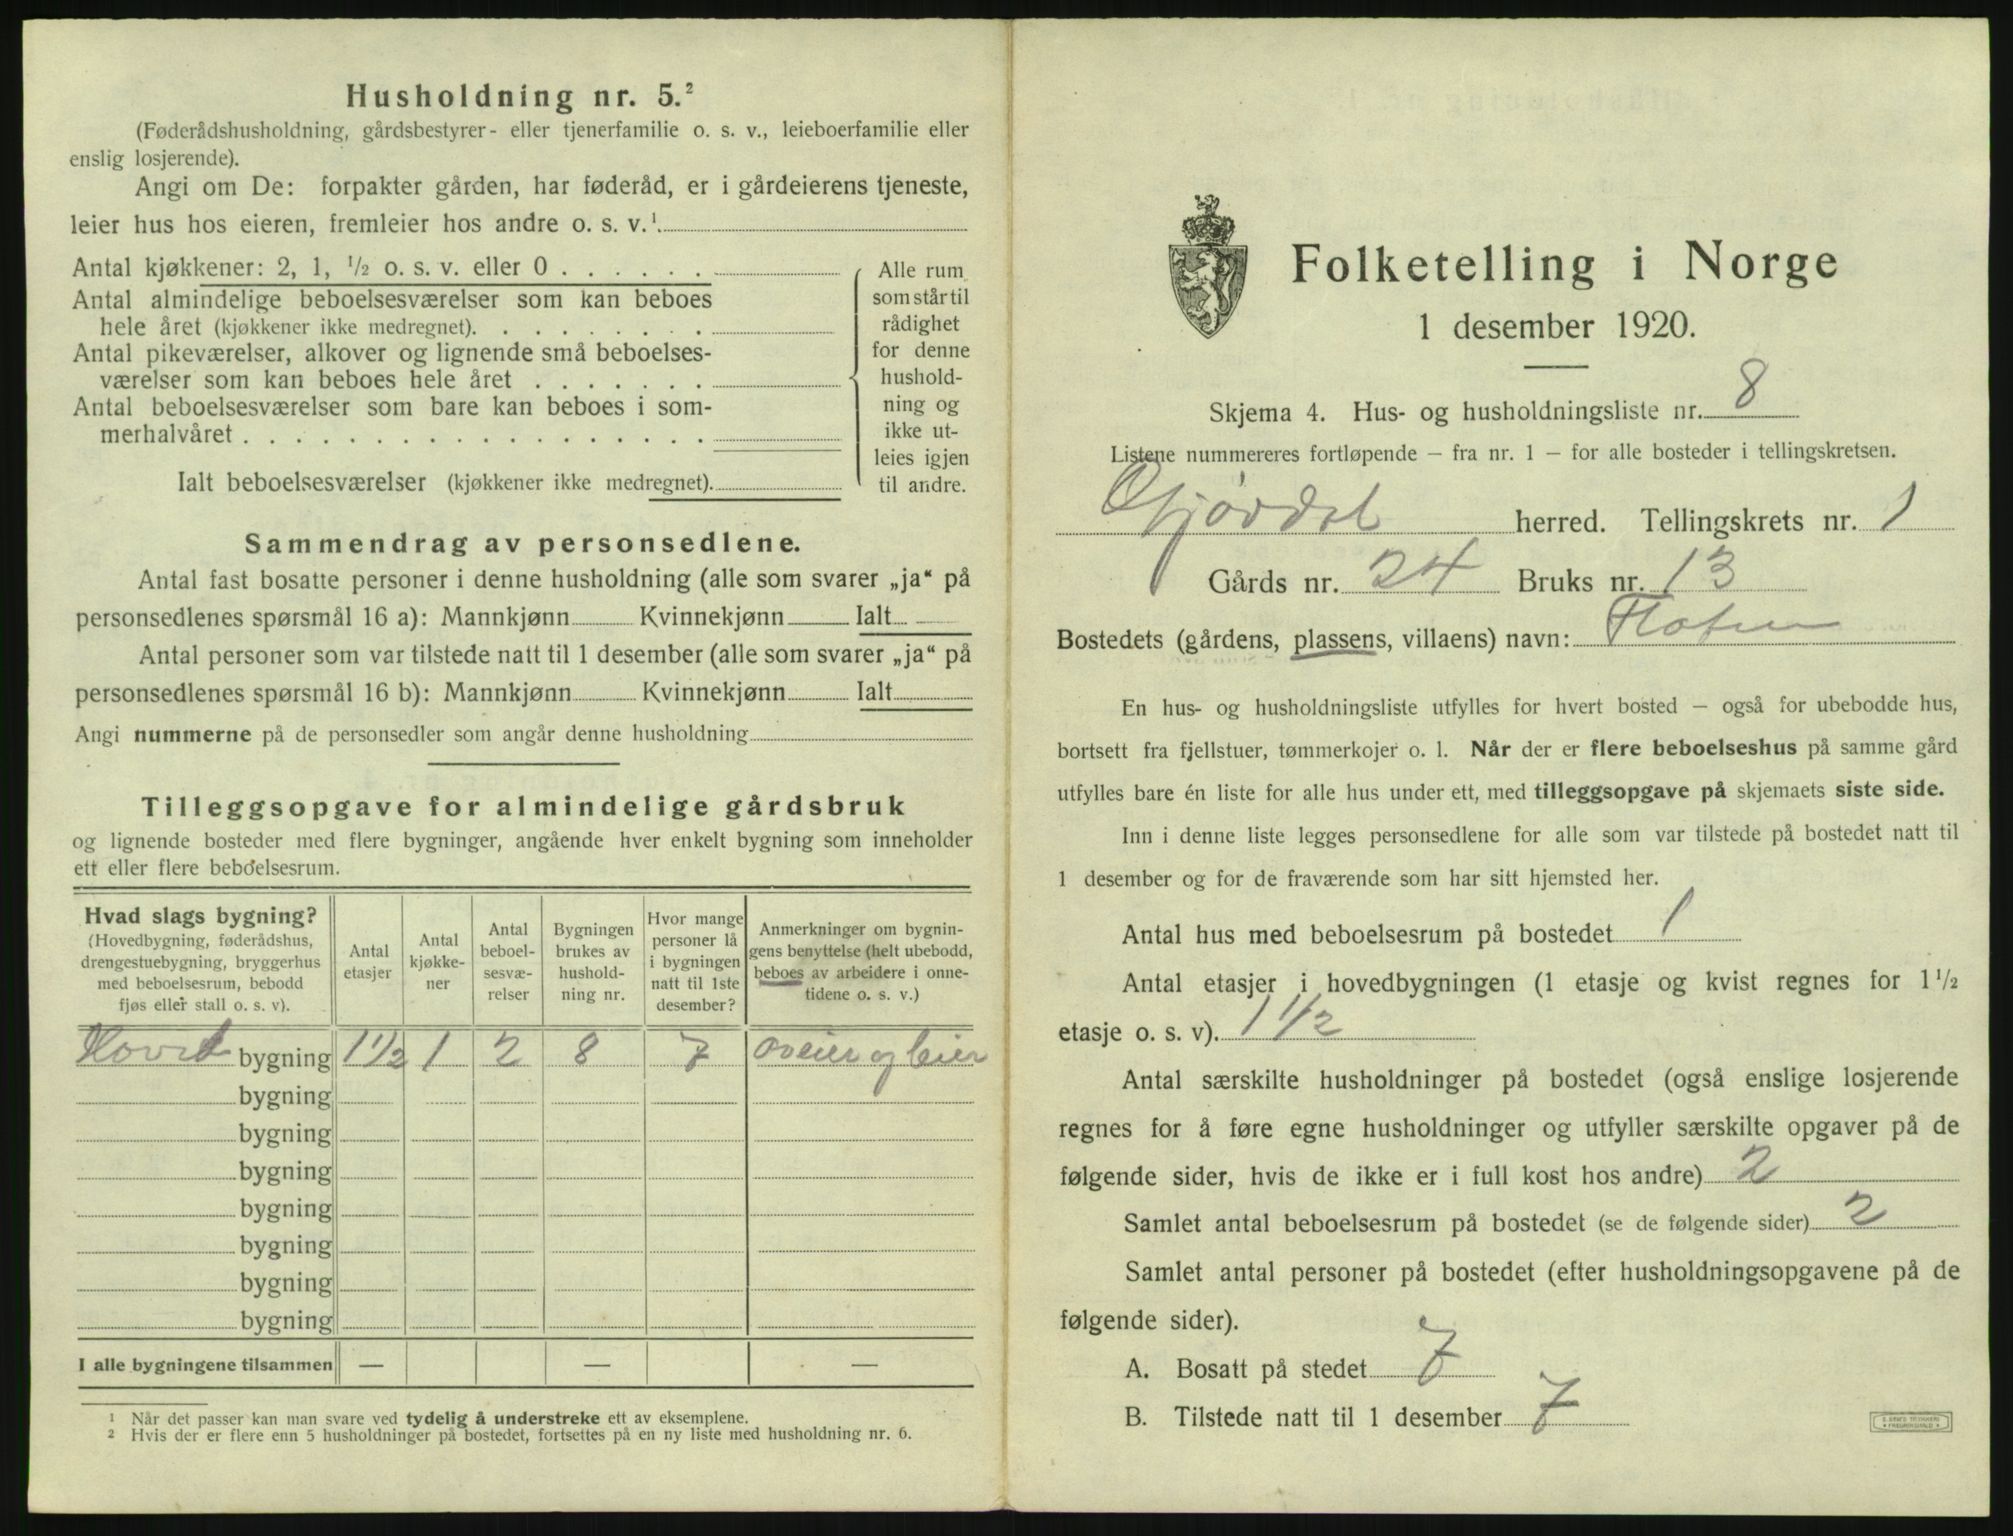 Husholdning nr. 5.²
(Føderådshusholdning, gårdsbestyrer- eller tjenerfamilie o. s. v., leieboerfamilie eller
enslig losjerende).
Angi om De: forpakter gården, har føderåd, er i gårdeierens tjeneste,
leier hus hos eieren, fremleier hos andre o. s. v.¹
Antal kjøkkener: 2, 1, ½ o. s. v. eller 0
Antal almindelige beboelsesværelser som kan beboes
hele året (kjøkkener ikke medregnet).
Antal pikeværelser, alkover og lignende små beboelses-
værelser som kan beboes hele året
Antal beboelsesværelser som bare kan beboes i som-
merhalvåret
Ialt beboelsesværelser (kjøkkener ikke medregnet).
Alle rum
som står til
rådighet
for denne
hushold-
ning og
ikke ut-
leies igjen
til andre.
Sammendrag av personsedlene.
Antal fast bosatte personer i denne husholdning (alle som svarer „ja“ på
personsedlenes spørsmål 16 a): Mannkjønn Kvinnekjønn Ialt
Antal personer som var tilstede natt til 1 desember (alle som svarer „ja“ på
personsedlenes spørsmål 16 b): Mannkjønn Kvinnekjønn Ialt
Angi nummerne på de personsedler som angår denne husholdning
Tilleggsopgave for almindelige gårdsbruk
og lignende bosteder med flere bygninger, angående hver enkelt bygning som inneholder
ett eller flere beboelsesrum.
Hvad slags bygning?
(Hovedbygning, føderådshus,
drengestuebygning, bryggerhus
med beboelsesrum, bebodd
fjøs eller stall o. s. v).
Antal
etasjer
Antal
kjøkke-
ner
Antal
beboel-
sesvæ-
relser
Bygningen
brukes av
hushold-
ning nr.
Hvor mange
personer lå
i bygningen
natt til 1ste
desember?
Anmerkninger om bygnin-
gens benyttelse (helt ubebodd,
beboes av arbeidere i onne-
tidene o. s. v.)
Hoved bygning 1½ 1 2 8 7
bygning
bygning
bygning
bygning
bygning
bygning
bygning
I alle bygningene tilsammen — — —
¹ Når det passer kan man svare ved tydelig å understreke ett av eksemplene.
² Hvis der er flere enn 5 husholdninger på bostedet, fortsettes på en ny liste med husholdning nr. 6.
Folketelling i Norge
1 desember 1920.
Skjema 4. Hus- og husholdningsliste nr. 8
Listene nummereres fortløpende — fra nr. 1 — for alle bosteder i tellingskretsen.
herred. Tellingskrets nr. 1
Gårds nr. 24 Bruks nr. 13
Bostedets (gårdens, plassens, villaens) navn:
En hus- og husholdningsliste utfylles for hvert bosted — også for ubebodde hus,
bortsett fra fjellstuer, tømmerkojer o. l. Når der er flere beboelseshus på samme gård
utfylles bare én liste for alle hus under ett, med tilleggsopgave på skjemaets siste side.
Inn i denne liste legges personsedlene for alle som var tilstede på bostedet natt til
1 desember og for de fraværende som har sitt hjemsted her.
Antal hus med beboelsesrum på bostedet 1
Antal etasjer i hovedbygningen (1 etasje og kvist regnes for 1½
etasje o. s. v). 1½
Antal særskilte husholdninger på bostedet (også enslige losjerende
regnes for å føre egne husholdninger og utfyller særskilte opgaver på de
følgende sider, hvis de ikke er i full kost hos andre) 2
Samlet antal beboelsesrum på bostedet (se de følgende sider) 2
Samlet antal personer på bostedet (efter husholdningsopgavene på de
følgende sider).
A. Bosatt på stedet 7
B. Tilstede natt til 1 desember 7